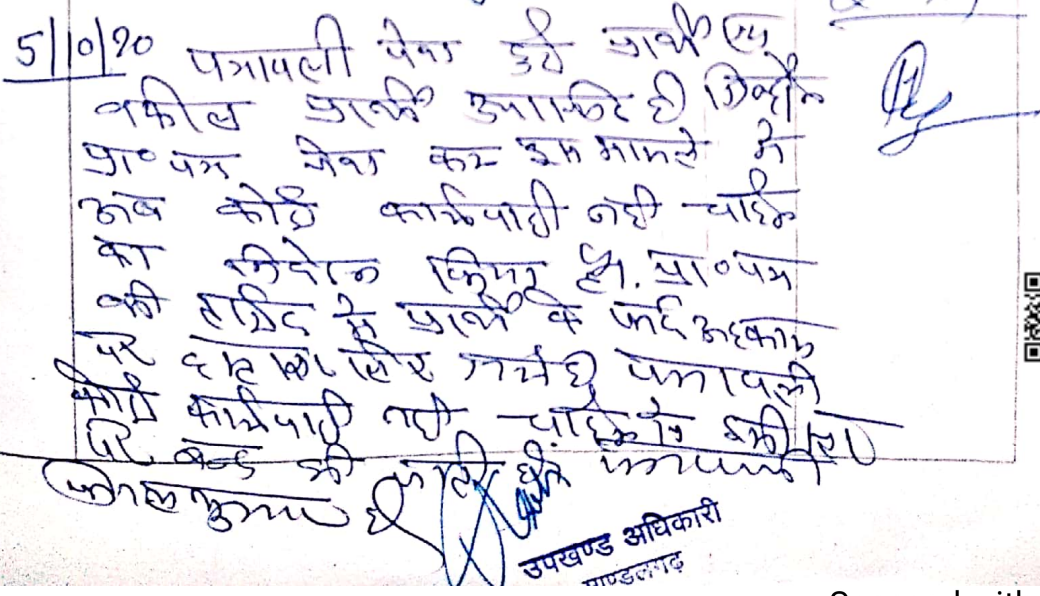 5/10/20 पत्रावली पेश हुई प्रार्थी एवं
वकील प्रार्थी उपस्थित है जिन्होंने
प्रा० पत्र पेश कर इस मामले में
अब कोई कार्यवाही नही चाहने
का निवेदन किया है. प्रा० पत्र
की ताईद में प्रार्थी के फर्द अहकाम
पर हस्ताक्षर लिए गये है पत्रावली
कोई कार्यवाही नही चाहने के
पर बन्द की जाती है पत्रावली
कुमार
उपखण्ड अधिकारी
माण्डलगढ़